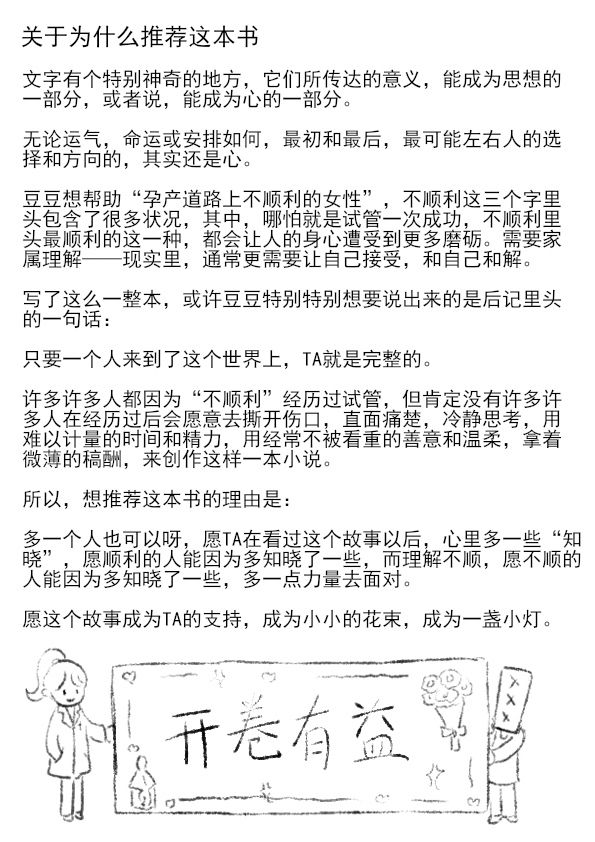 关于为什么推荐这本书
文字有个特别神奇的地方，它们所传达的意义，能成为思想的
一部分，或者说，能成为心的一部分。
无论运气，命运或安排如何，最初和最后，最可能左右人的选
择和方向的，其实还是心。
豆豆想帮助“孕产道路上不顺利的女性”，不顺利这三个字里
头包含了很多状况，其中，哪怕就是试管一次成功，不顺利里
头最顺利的这一种，都会让人的身心遭受到更多磨砺。需要家
属理解——现实里，通常更需要让自己接受，和自己和解。
写了这么一整本，或许豆豆特别特别想要说出来的是后记里头
的一句话：
只要一个人来到了这个世界上，TA就是完整的。
许多许多人都因为“不顺利”经历过试管，但肯定没有许多许
多人在经历过后会愿意去撕开伤口，直面痛楚，冷静思考，用
难以计量的时间和精力，用经常不被看重的善意和温柔，拿着
微薄的稿酬，来创作这样一本小说。
所以，想推荐这本书的理由是：
多一个人也可以呀，愿TA在看过这个故事以后，心里多一些“知
晓”，愿顺利的人能因为多知晓了一些，而理解不顺，愿不顺的
人能因为多知晓了一些，多一点力量去面对。
愿这个故事成为TA的支持，成为小小的花束，成为一盏小灯。
开卷有益